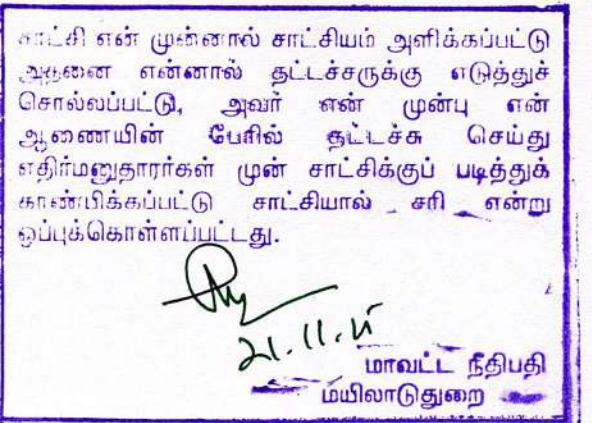 சாட்சி என் முன்னால் சாட்சியம் அளிக்கப்பட்டு
அதனை என்னால் தட்டச்சருக்கு எடுத்துச்
சொல்லப்பட்டு, அவர் என் முன்பு என்
ஆணையின் பேரில் தட்டச்சு செய்து
எதிர்மனுதாரர்கள் முன் சாட்சிக்குப் படித்துக்
காண்பிக்கப்பட்டு சாட்சியால் சரி என்று
ஒப்புக்கொள்ளப்பட்டது.
21.11.
மாவட்ட நீதிபதி
மயிலாடுதுறை